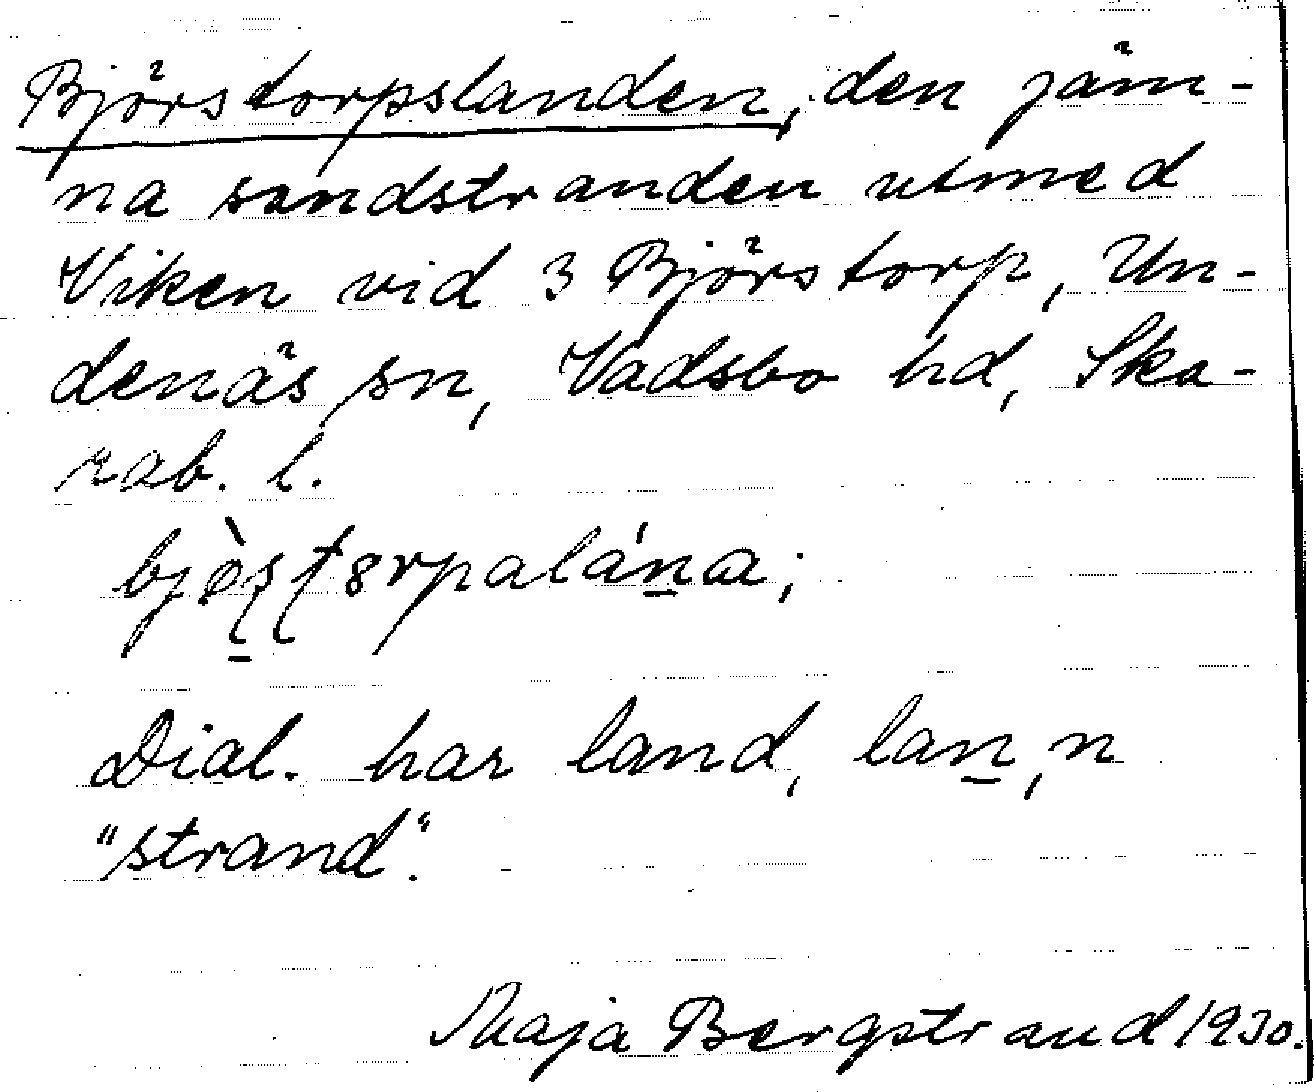 Björstorpslanden, den jäm-
na sandstranden utmed
Viken vid 3 Björstorp, Un-
denäs sn, Vadsbo hd, Ska-
rab. l.
Dial. har land, lan̲, n
"strand".
Maja Bergstrand 1930.